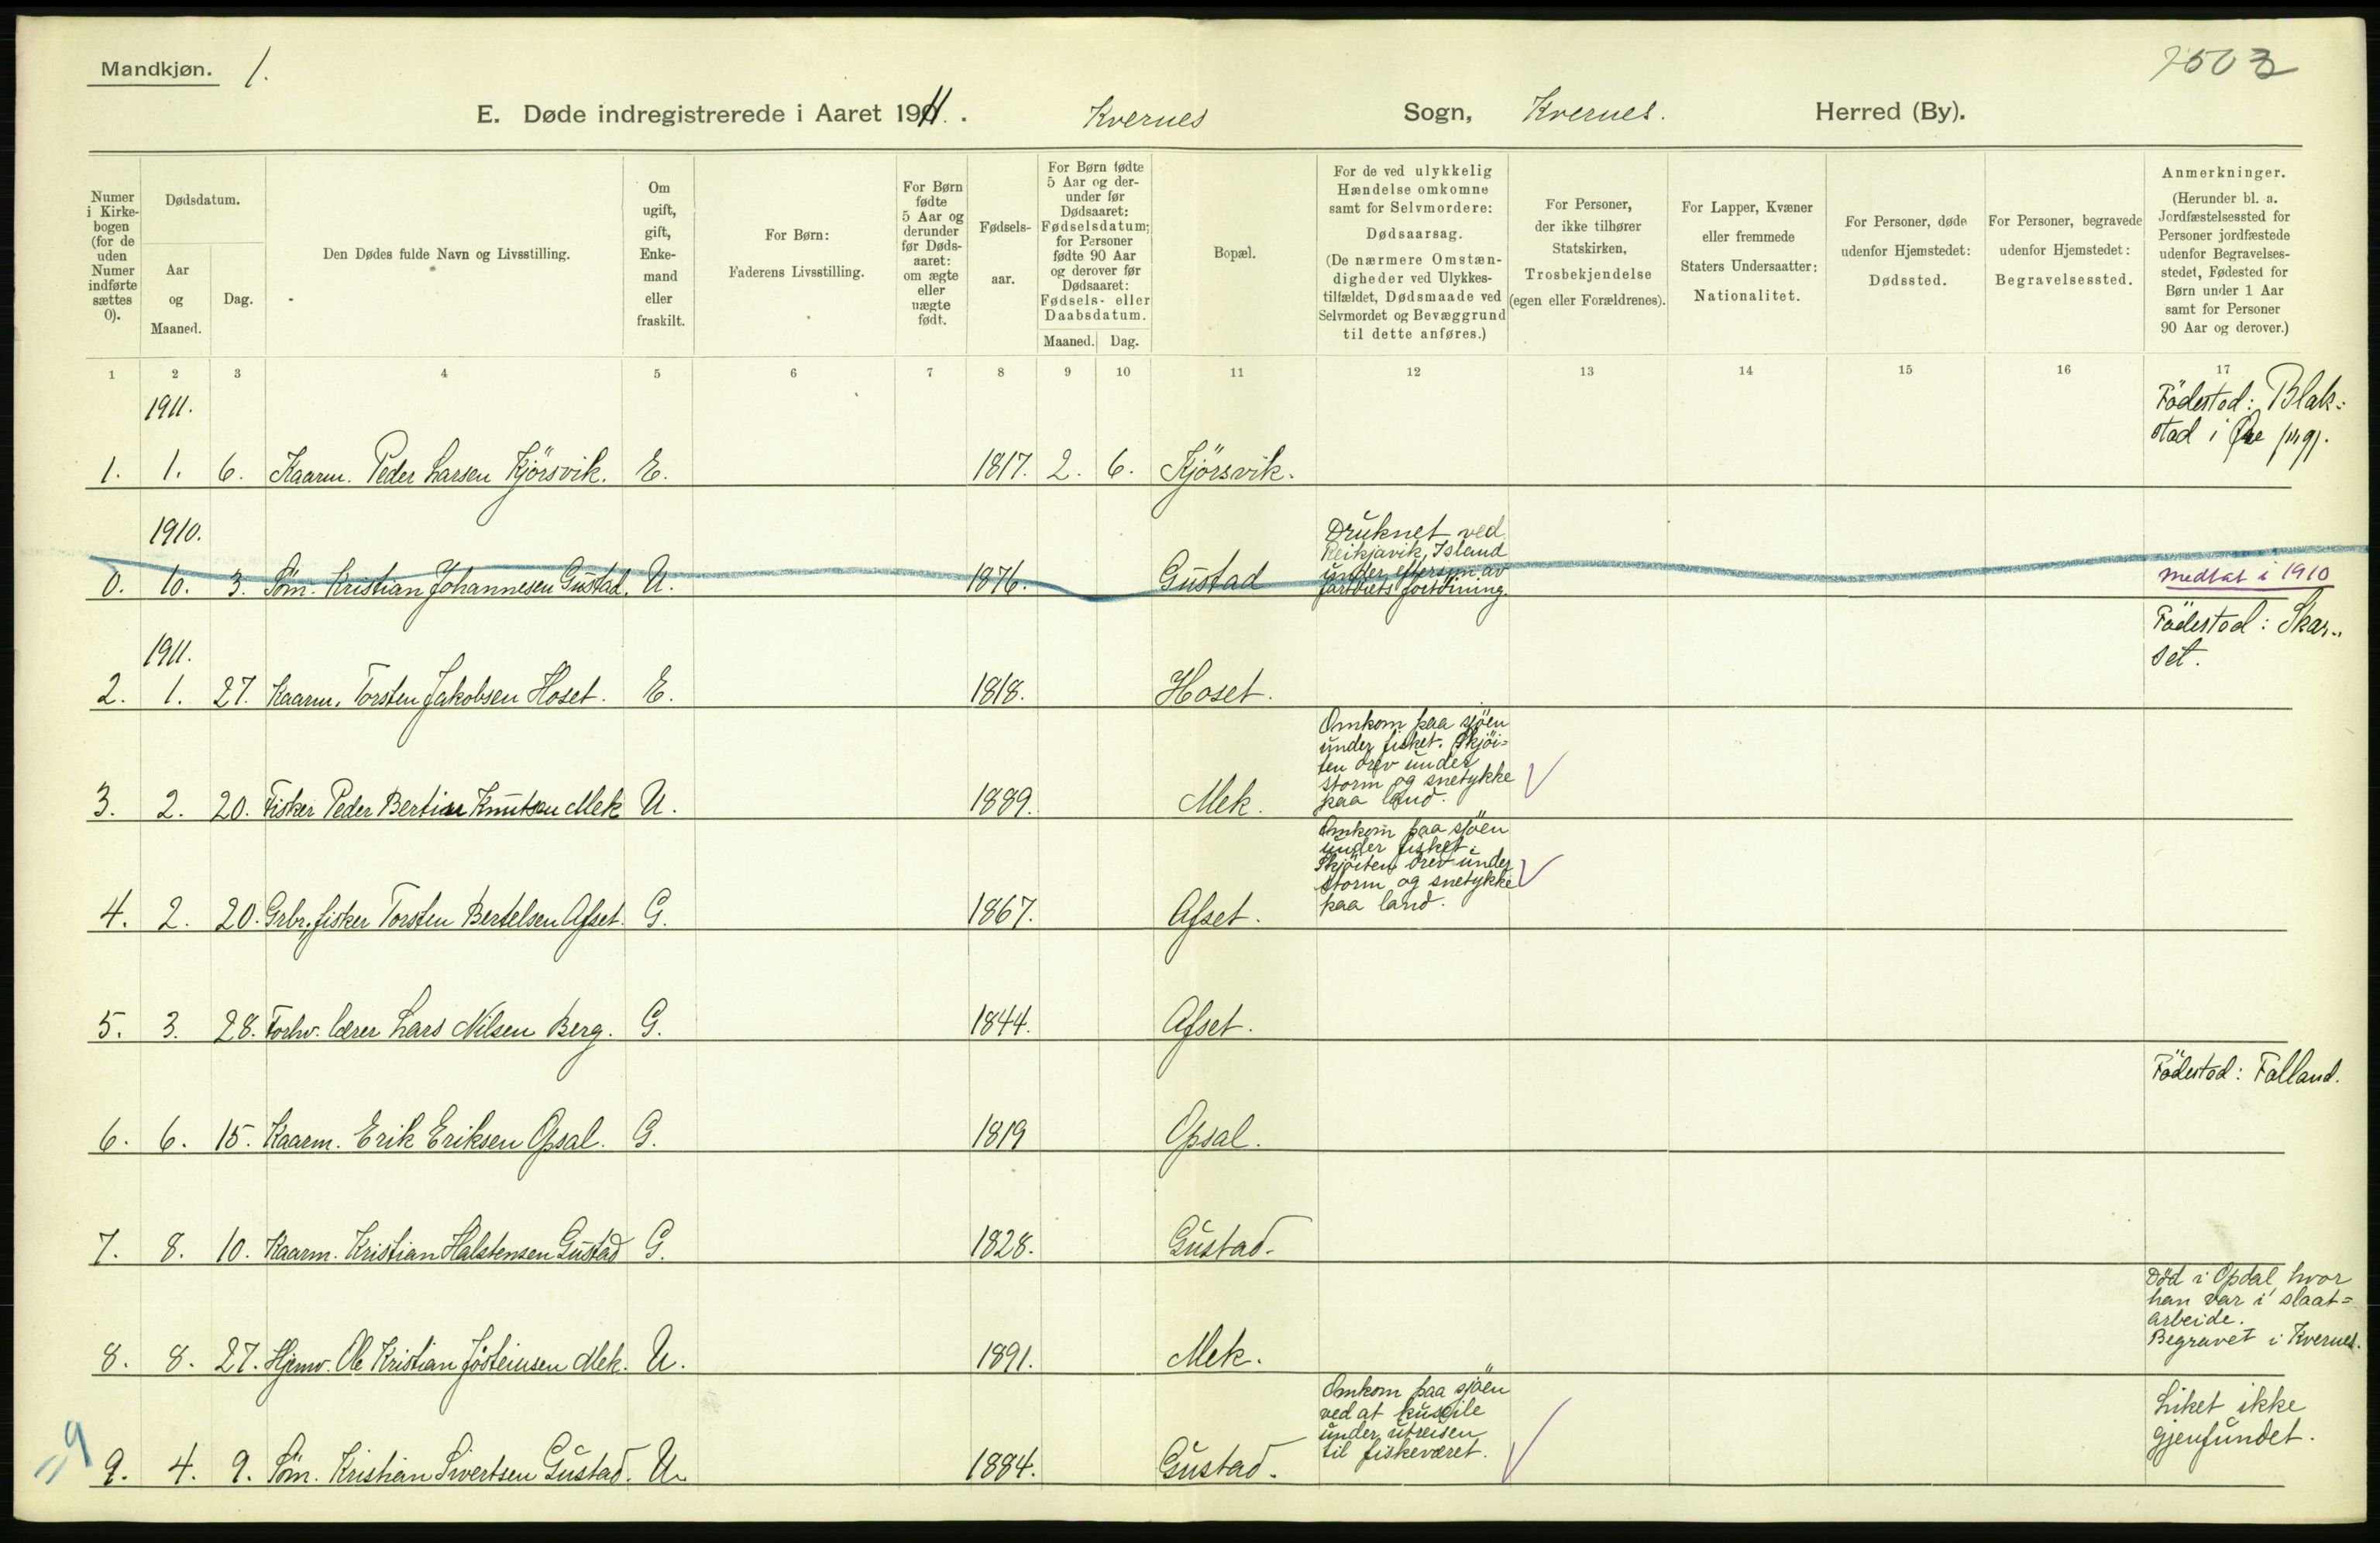 Mandkjøn. 1.
7503
E. Døde indregistrerede i Aaret 1911. Kvernes Sogn, Kvernes. Herred (By).
Numer i Kirkebogen (for de uden Numer indførte sættes 0).
Dødsdatum.
Aar og Maaned.
Dag.
Den Dødes fulde Navn og Livsstilling.
Om ugift, gift, Enkemand eller fraskilt.
For Børn: Faderens Livsstilling.
For Børn fødte 5 Aar og derunder før Dødsaaret: om ægte eller uægte født.
Fødselsaar.
For Børn fødte 5 Aar og derunder før Dødsaaret: Fødselsdatum; for Personer fødte 90 Aar og derover før Dødsaaret: Fødsels- eller Daabsdatum.
Maaned. Dag.
Bopæl.
For de ved ulykkelig Hændelse omkomne samt for Selvmordere: Dødsaarsag. (De nærmere Omstændigheder ved Ulykkestilfældet, Dødsmaade ved Selvmordet og Bevæggrund til dette anføres.)
For Personer, der ikke tilhører Statskirken, Trosbekjendelse (egen eller Forældrenes).
For Lapper, Kvæner eller fremmede Staters Undersaatter: Nationalitet.
For Personer, døde udenfor Hjemstedet: Dødssted.
For Personer, begravede udenfor Hjemstedet: Begravelsessted.
Anmerkninger. (Herunder bl. a. Jordfæstelsessted for Personer jordfæstede udenfor Begravelsesstedet, Fødested for Børn under 1 Aar samt for Personer 90 Aar og derover.)
1 2 3 4 5 6 7 8 9 10 11 12 13 14 15 16 17
1911.
Födestad: Blak-
stad i Øre prgj.
1. 1. 6. Kaarm. Peder Larsen Kjörsvik. E. 1817. 2. 6. Kjörsvik.
1910.
Druknet ved
Reikjavik, Island
under eftersyn av
fartöiets fortöining.
0. 10. 3. Söm. Kristian Johannesen Gustad. U. 1876. Gustad
medtat i 1910
1911.
Födestad: Skar-
set.
2. 1. 27. Kaarm. Torsten Jakobsen Hoset. E. 1818. Hoset.
Omkom paa sjöen
under fisket. Skjöi-
ten drev under
storm og snetykke
paa land.
3. 2. 20. Fisker Peder Bertin Knutsen Mek U. 1889. Mek.
Omkom paa sjöen
under fisket.
Skjöiten drev under
storm og snetykke
paa land.
4. 2. 20. Grbr., fisker Torsten Bertelsen Afset. G. 1867. Afset.
5. 3. 28. Forhv. lærer Lars Nilsen Berg. G. 1844. Afset.
Födestad: Falland.
6. 6. 15. Kaarm. Erik Eriksen Opsal. G. 1819 Opsal.
7. 8. 10. Kaarm. Kristian Halstensen Gustad G. 1828. Gustad.
Död i Opdal, hvor
han var i slaat-
arbeide.
Begravet i Kvernes.
8. 8. 27. Hjemv. Ole Kristian Jösteinsen Mek. U. 1891. Mek.
Omkom paa sjöen
ved at kuseile
under utreisen
til fiskeværet.
Liket ikke
gjenfundet.
=9
9. 4. 9. Söm. Kristian Sivertsen Gustad. U. 1884. Gustad.